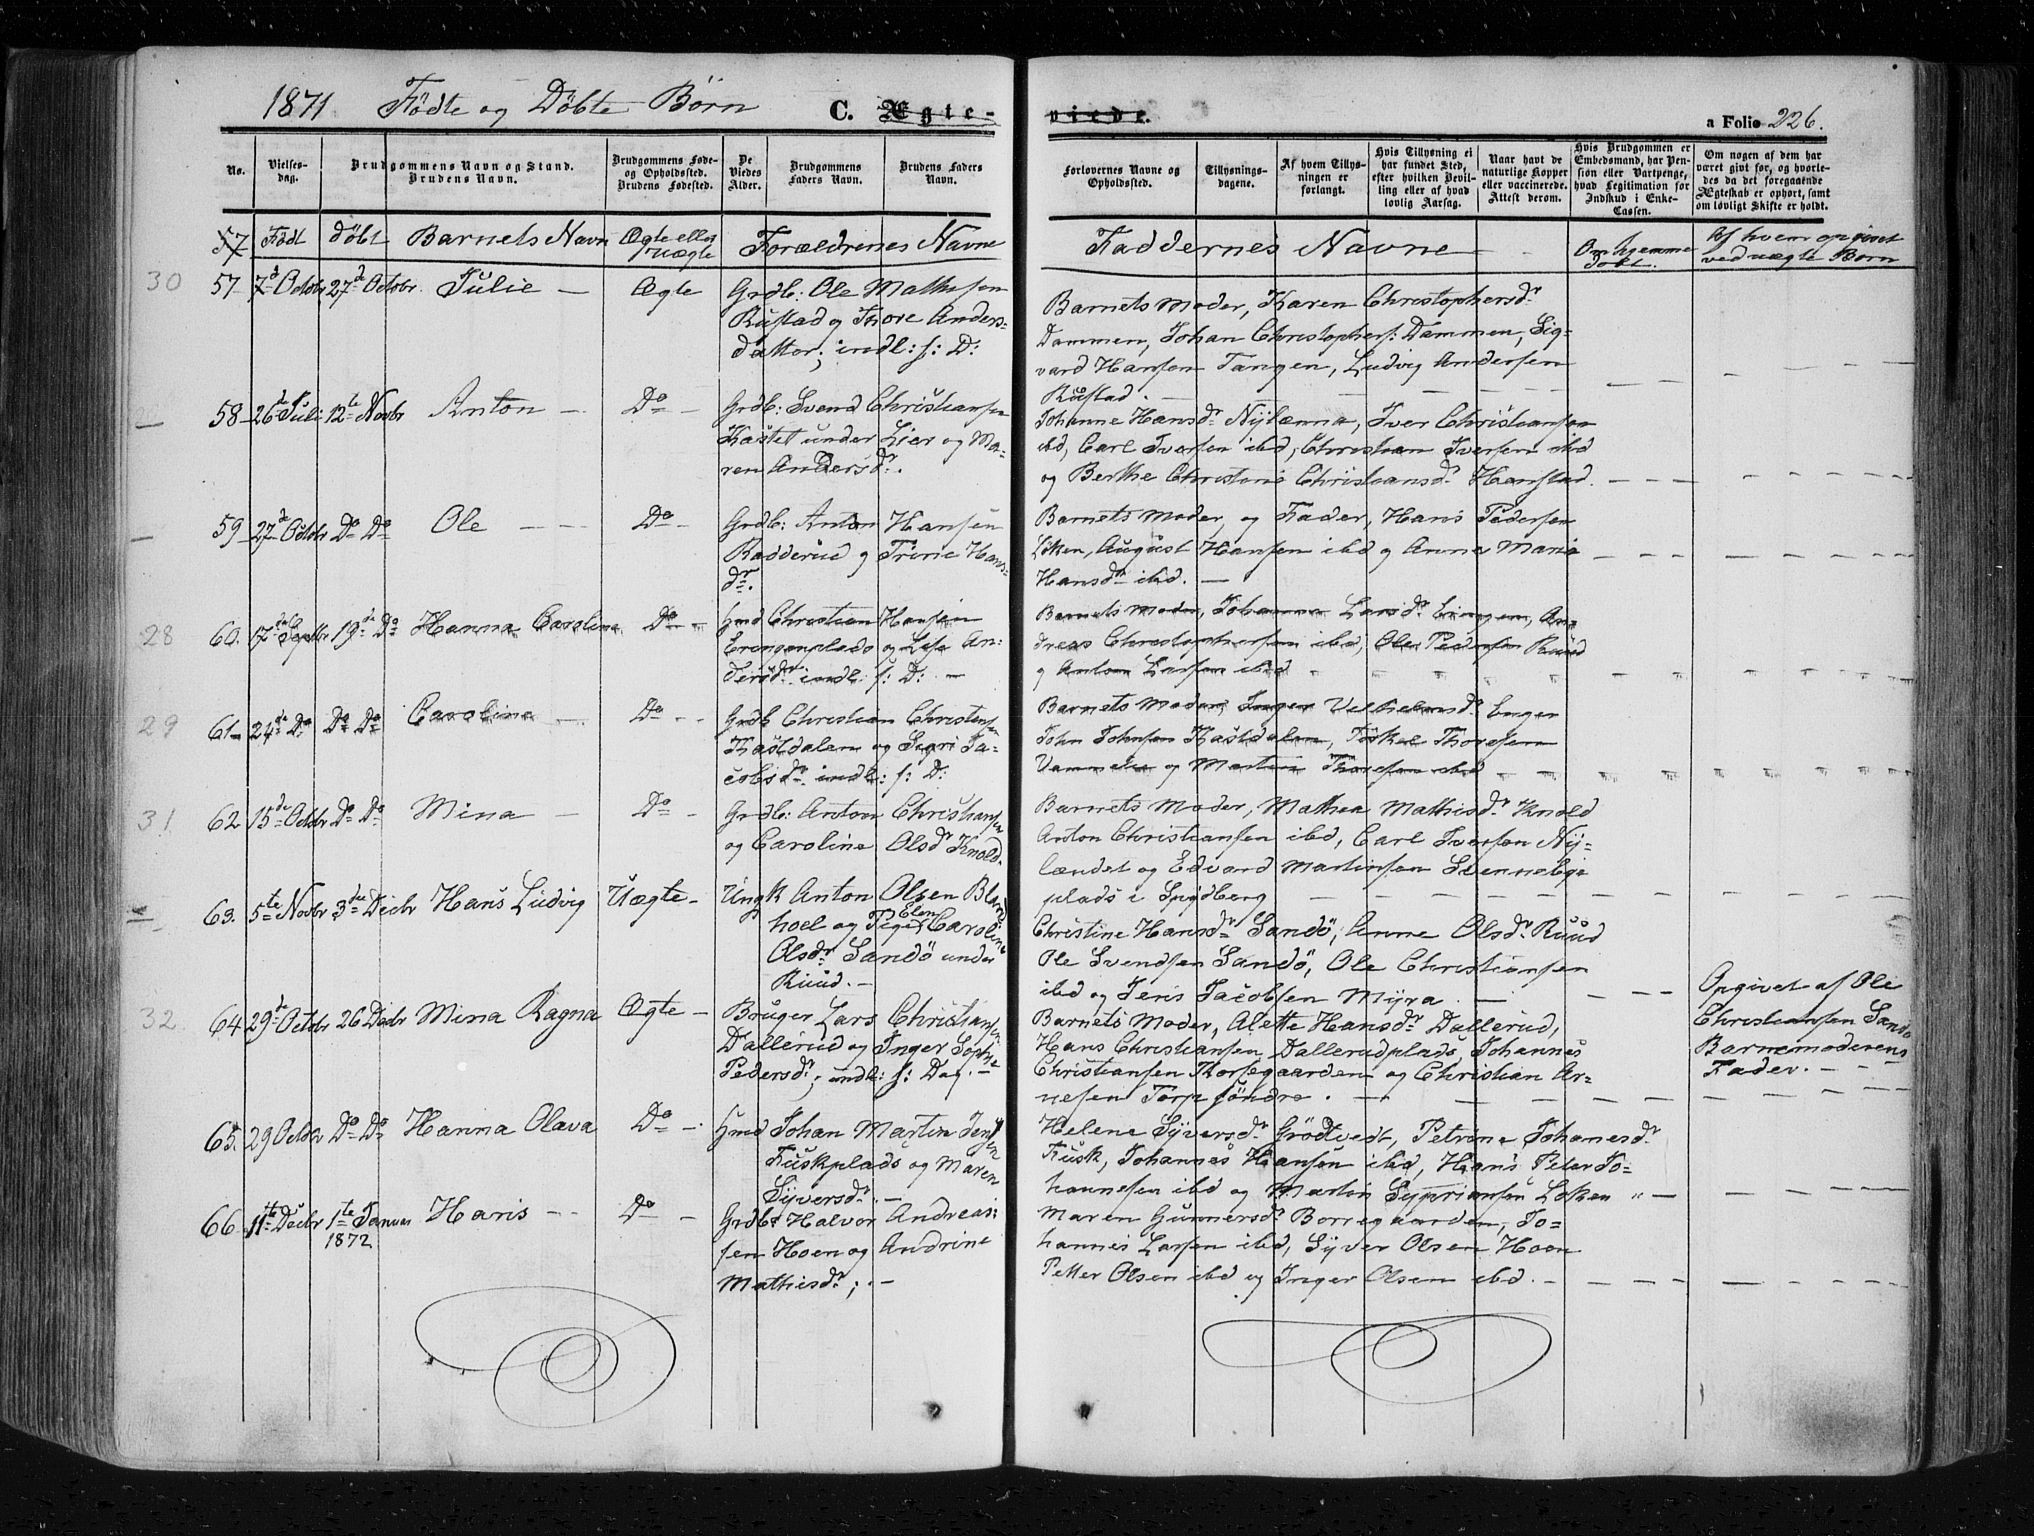 1871 Födte og Döbte Börn C. Ægte-
viede.
a Folio 226.
No.
Vielses-
dag.
Brudgommens Navn og Stand.
Brudens Navn.
Brudgommens Føde-
og Opholdssted.
Brudens Fødested.
De
Viedes
Alder.
Brudgommens
Faders Navn.
Brudens Faders
Navn.
Forlovernes Navne og
Opholdssted.
Tillysnings-
dagene.
Af hvem Tillys-
ningen er
forlangt.
Hvis Tillysning ei
har fundet Sted,
efter hvilken Bevil-
ling eller af hvad
lovlig Aarsag.
Naar havt de
naturlige Kopper
eller vaccinerede.
Attest derom.
Hvis Brudgommen er
Embedsmand, har Pen-
sion eller Vartpenge,
hvad Legitimation for
Indskud i Enke-
Cassen.
Om nogen af dem har
været givt før, og hvorle-
des da det foregaaende
Ægteskab er ophørt, samt
om lovligt Skifte er holdt.
57 Födt döbt Barnets Navn Ægte eller
uægte
Forældrenes Navne
Faddernes Navne
Om hjemme
döbt.
Af hvem opgivet
ved uægte Börn
30 57 7de Octobr 27de Octobr. Julie Ægte Grdb: Ole Mathisen
Rustad og Thore Anders-
datter; indl: s: D:
Barnets Moder, Karen Christophersdr
Dammen, Johan Christophers: Dammen, Sig-
vard Hansen Tangen, Ludvig Andersen
Rustad.
58 26de Juli 12te Novbr Anton Do Grdb: Svend Christiansen
Kastet under Lier og Ma-
ren Andersdr.
Johanne Hansdr Nylænna, Iver Christiansen
ibd, Carl Iversen ibd, Christian Iversen ibd
og Berthe Christine Christiansdr Hanstad.
59 27de Octobr Do Do Ole Do Grdb: Anton Hansen
Radderud og Trine Hans-
dr.
Barnets Moder og Fader, Hans Pedersen
Löken, August Hansen ibd og Anne Marie
Hansdr ibd.
28 60. 17de Septbr 19de Do Hanna Caroline Do Hmd Christian Hansen
Eringenplads og Lise An-
dersdr indl: s: D:
Barnets Moder, Johanna Larsdr Eingen, An-
dreas Christophersen ibd, Ole Pedersen Ruud
og Anton Larsen ibd
29 61 24de Do Do Do Caroline Do Grdb Christian Christensen
Kastdalen og Sigri Ja-
cobsdr indl: s: D:
Barnets Moder, Inger Vilhelmsdr Enger
John Johnsen Kastdalen, Toskel Thoresen
og Martin Thoresen ibd
31. 62 15de Octobr Do Do Mina Do Grdb: Anton Christiansen
og Caroline Olsdr Knold.
Barnets Moder, Mathea Mathisdr Knold
Anton Christiansen ibd, Carl Iversen Ny-
lændet og Edvard Martinsen Svenneby
plads i Spydberg
63. 5te Novbr 3die Decbr Hans Ludvig Uægte Ungk Anton Olsen
hoel og Pige Elen Caroline
Olsdr Sandö under
Ruud.
Christine Hansdr Sandö, Anne Olsdr Ruud
Ole Svendsen Sandö, Ole Christiansen
ibd og Jens Jacobsen Myra.
Opgivet af Ole
Christiansen Sandö
Barnemoderens
Fader.
32. 64 29de Octobr 26 Decbr Mina Ragna Ægte Bruger Lars Christiansen
Dallerud og Inger Sophie
Pedersdr; indl: s: Dag.
Barnets Moder, Alette Hansdr Dallerud,
Hans Christiansen Dallerudplads, Johannes
Christiansen Thorsegaarden og Christian Ar-
nesen Torp söndre.
65. 29 Octobr Do Do Hanna Olava Do Hmd Johan Martin Jensen
Fuskplads og Maren
Syversdr.
Helene Syversdr Grödtvedt, Petrine Johanesdr
Fusk, Johannes Hansen ibd, Hans Peter Jo-
hannesen ibd og Martin Sypriansen Loken
66. 11te Decbr 1te Januar
1872
Hans Do Grdbr Halvor Andreas-
sen Hoen og Andrine
Mathisdr;
Maren Gunnersdr Borregaarden, Jo-
hannes Larsen ibd, Syver Olsen Hoen
Petter Olsen ibd og Inger Olsen ibd.